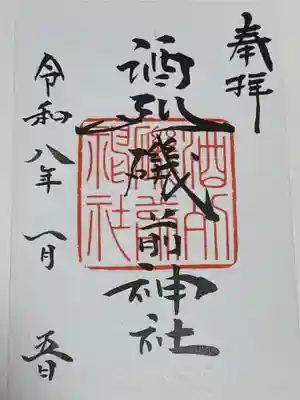 奉拝
酒列磯前神社
令和八年一月五日
酒列磯前神社